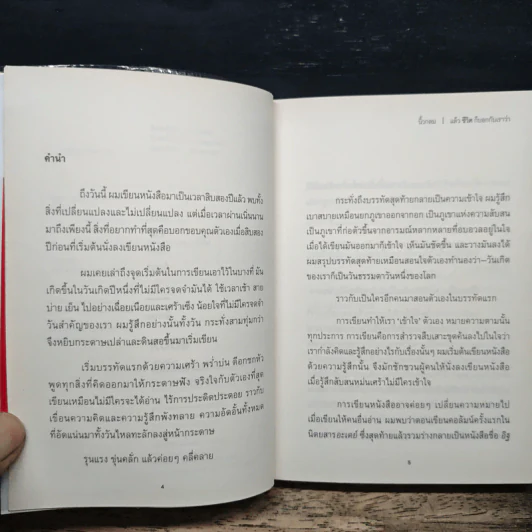 คำนำ
ถึงวันนี้ ผมเขียนหนังสือมาเป็นเวลาสิบสองปีแล้ว พบทั้ง
สิ่งที่เปลี่ยนแปลงและไม่เปลี่ยนแปลง แต่เมื่อเวลาผ่านเนิ่นนาน
มาถึงเพียงนี้ สิ่งที่อยากทำที่สุดคือบอกขอบคุณตัวเองเมื่อสิบสอง
ปีก่อนที่เริ่มต้นนั่งลงเขียนหนังสือ
ผมเคยเล่าถึงจุดเริ่มต้นในการเขียนเอาไว้ในบางที่ มัน
เกิดขึ้นในวันเกิดปีหนึ่งที่ไม่มีใครจดจำมันได้ ใช้เวลาเช้า สาย
บ่าย เย็น ไปอย่างเฉื่อยเนือยและเศร้าเซ็ง น้อยใจที่ไม่มีใครจดจำ
วันสำคัญของเรา ผมรู้สึกอย่างนั้นทั้งวัน กระทั่งสามทุ่มกว่า
จึงหยิบกระดาษเปล่าและดินสอขึ้นมาเริ่มเขียน
เริ่มบรรทัดแรกด้วยความเศร้า พร่ำบ่น ตีอกชกหัว
พูดทุกสิ่งที่คิดออกมาให้กระดาษฟัง จริงใจกับตัวเองที่สุด
เขียนเหมือนไม่มีใครจะได้อ่าน ไร้การประดิดประดอย ราวกับ
เขื่อนความคิดและความรู้สึกพังทลาย ความอัดอั้นทั้งหมด
ที่อัดแน่นมาทั้งวันไหลทะลักลงสู่หน้ากระดาษ
รุนแรง ขุ่นคลั่ก แล้วค่อยๆ คลี่คลาย
4
นิ้วกลม | แล้ว ชีวิต ก็บอกกับเราว่า
กระทั่งถึงบรรทัดสุดท้ายกลายเป็นความเข้าใจ ผมรู้สึก
เบาสบายเหมือนยกภูเขาออกจากอก เป็นภูเขาแห่งความสับสน
เป็นภูเขาที่ก่อตัวขึ้นจากอารมณ์หลากหลายที่อบอวลอยู่ในใจ
เมื่อได้เขียนมันออกมาก็เข้าใจ เห็นมันชัดขึ้น และวางมันลงได้
ผมสรุปบรรทัดสุดท้ายเหมือนสอนใจตัวเองทำนองว่า–วันเกิด
ของเราก็เป็นวันธรรมดาวันหนึ่งของโลก
ราวกับเป็นใครอีกคนมาสอนตัวเองในบรรทัดแรก
การเขียนทำให้เรา 'เข้าใจ' ตัวเอง หมายความตามนั้น
ทุกประการ การเขียนคือการสำรวจสืบเสาะขุดค้นลงไปในใจว่า
เรากำลังคิดและรู้สึกอย่างไรกับเรื่องนั้นๆ ผมเริ่มต้นเขียนหนังสือ
ด้วยความรู้สึกนั้น จึงมักชักชวนผู้คนให้นั่งลงเขียนหนังสือ
เมื่อรู้สึกสับสนหม่นเศร้าไม่มีใครเข้าใจ
การเขียนหนังสืออาจค่อยๆ เปลี่ยนความหมายไป
เมื่อเขียนให้คนอื่นอ่าน ผมพบว่าตอนเขียนคอลัมน์ครั้งแรกใน
นิตยสารอะเดย์ ซึ่งสุดท้ายแล้วรวมร่างกลายเป็นหนังสือชื่อ อิฐ
5